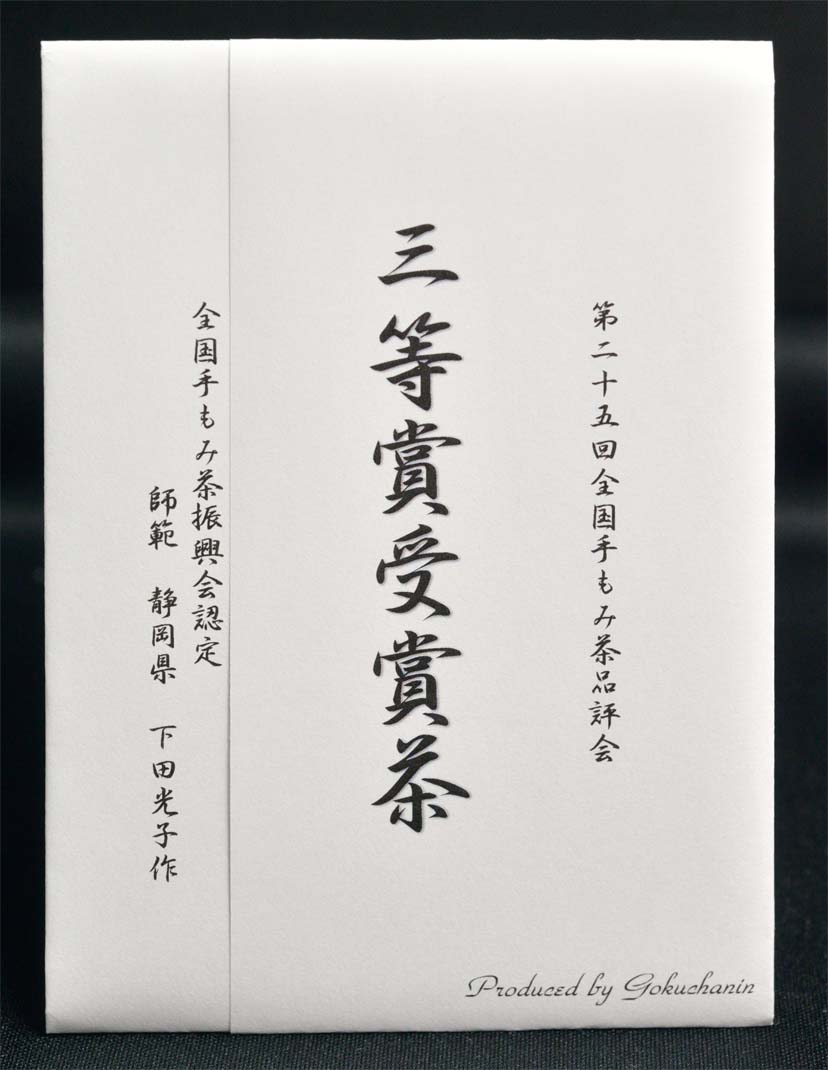 第二十五回全国手もみ茶品評会
三等賞受賞茶
全国手もみ茶振興会認定
師範　静岡県　下田光子作
Produced by Gokuchanin